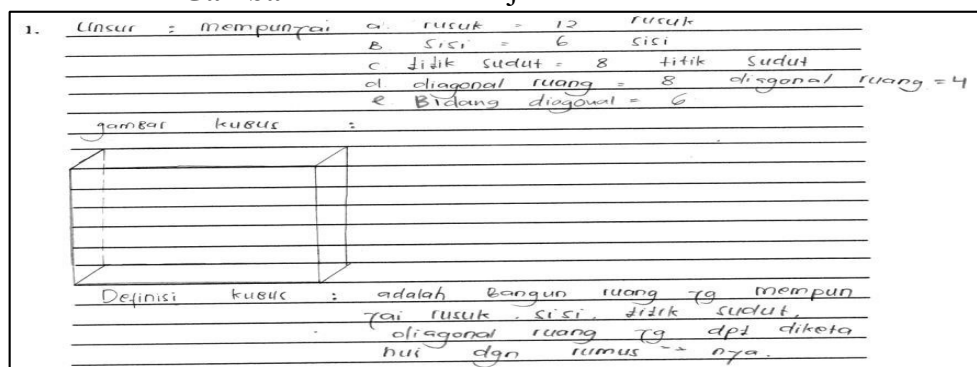 1. Unsur : mempunyai a. rusuk = 12 rusuk
B sisi = 6 sisi
c titik sudut = 8 titik sudut
d. diagonal ruang = 8 diagonal ruang = 4
e. Bidang diagonal = 6
gambar kubus :
Definisi kubus : adalah Bangun ruang yg mempun
yai rusuk, sisi, titik sudut,
diagonal ruang yg dpt diketa
hui dgn rumus -- nya.